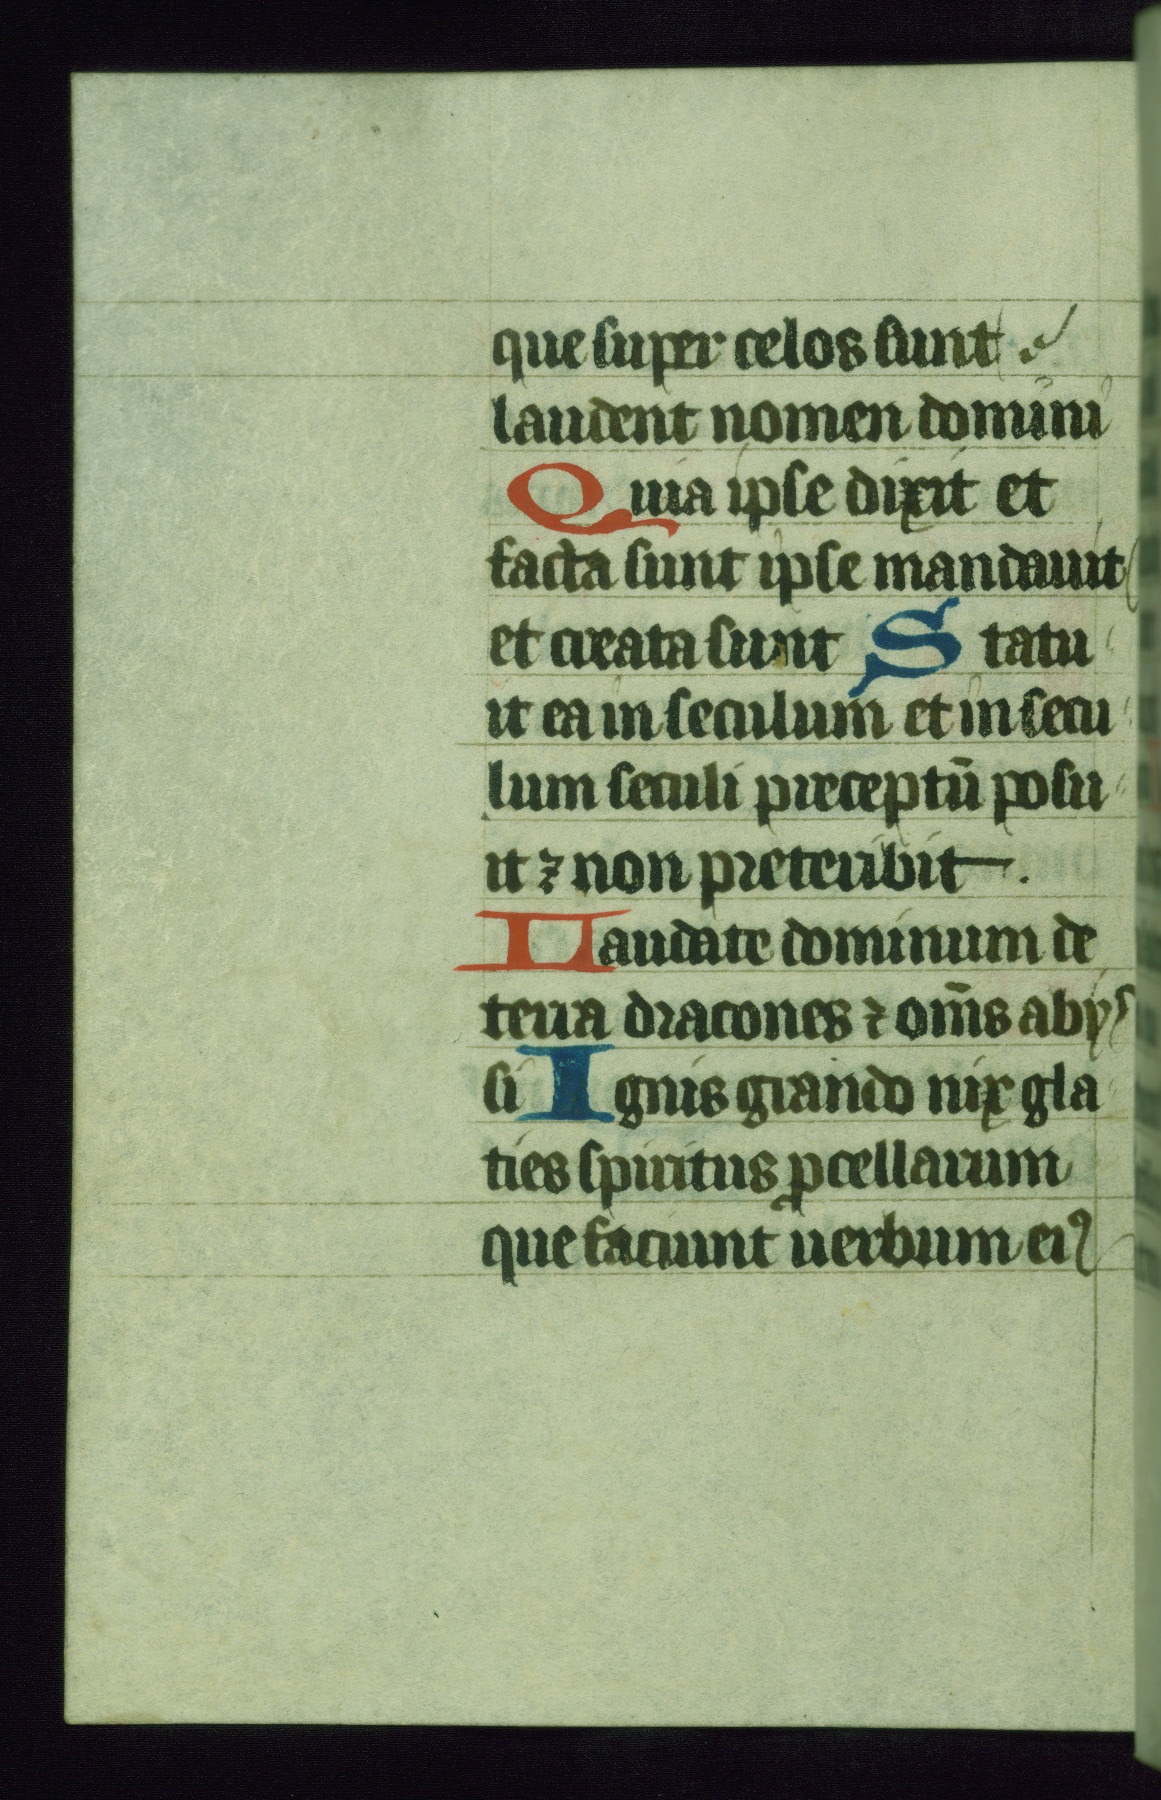 que super celos sunt
laudent nomen domini
Quia ipse dixit et
facta sunt ipse mandauit
et creata sunt Statu
it ea in seculum et in secu
lum seculi preceptū posu
it ⁊ non preteribit.
Laudate dominum de
terra dracones ⁊ om̄s abys
si Ignis grando nix gla
ties spiritus ꝓcellarum
que faciunt uerbum eiꝰ